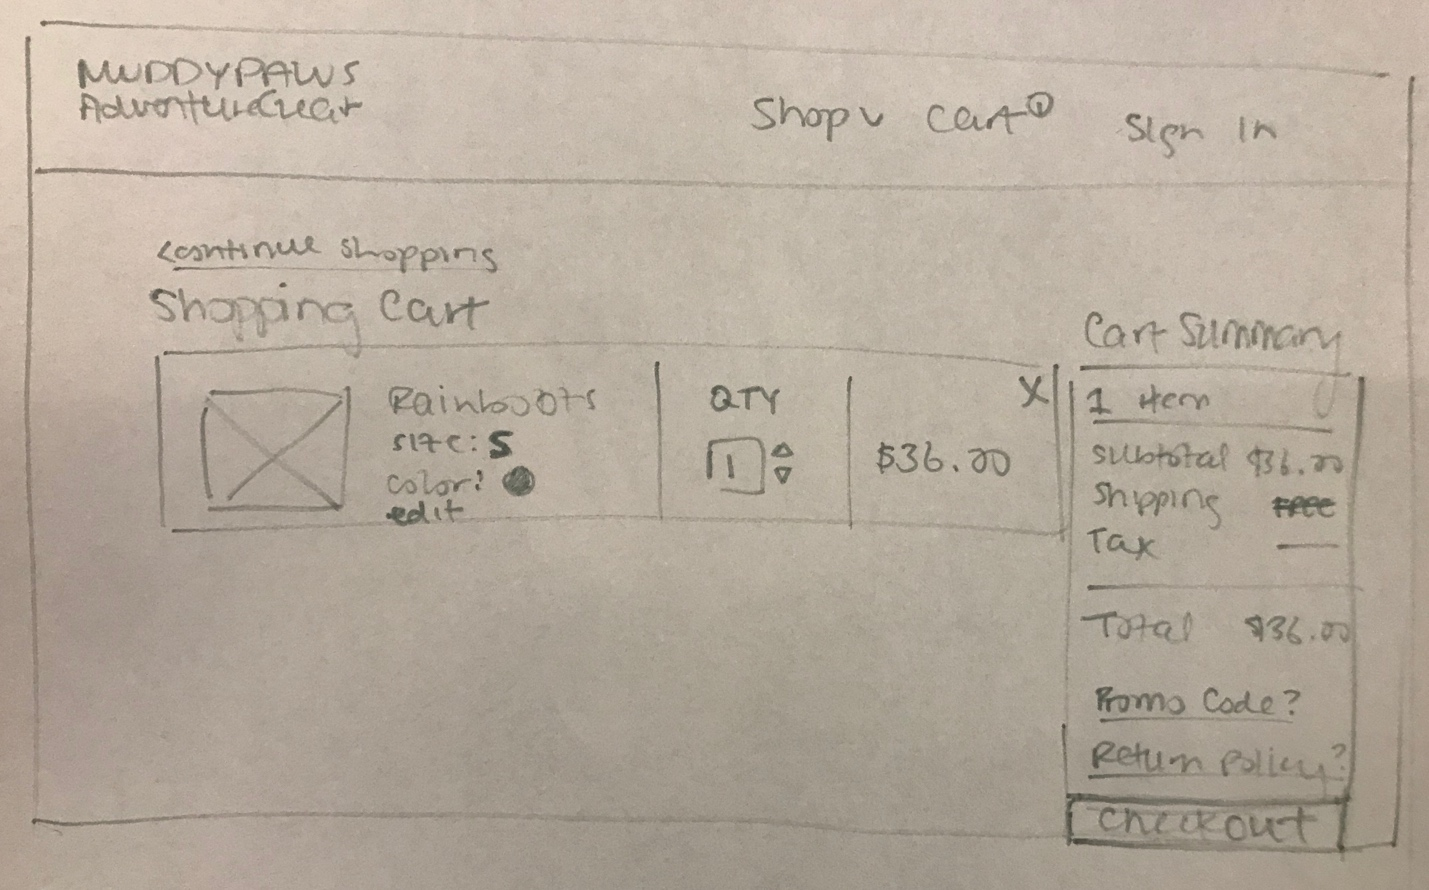 MUDDYPAWS
AdventureGear
Shop v Cart 1 Sign In
<continue shopping
Shopping Cart
Rainboots
size: S
color:
edit
QTY
1
$36.00
X
Cart Summary
1 item
subtotal $36.00
Shipping FREE
Tax
Total $36.00
Promo Code?
Return Policy?
Checkout